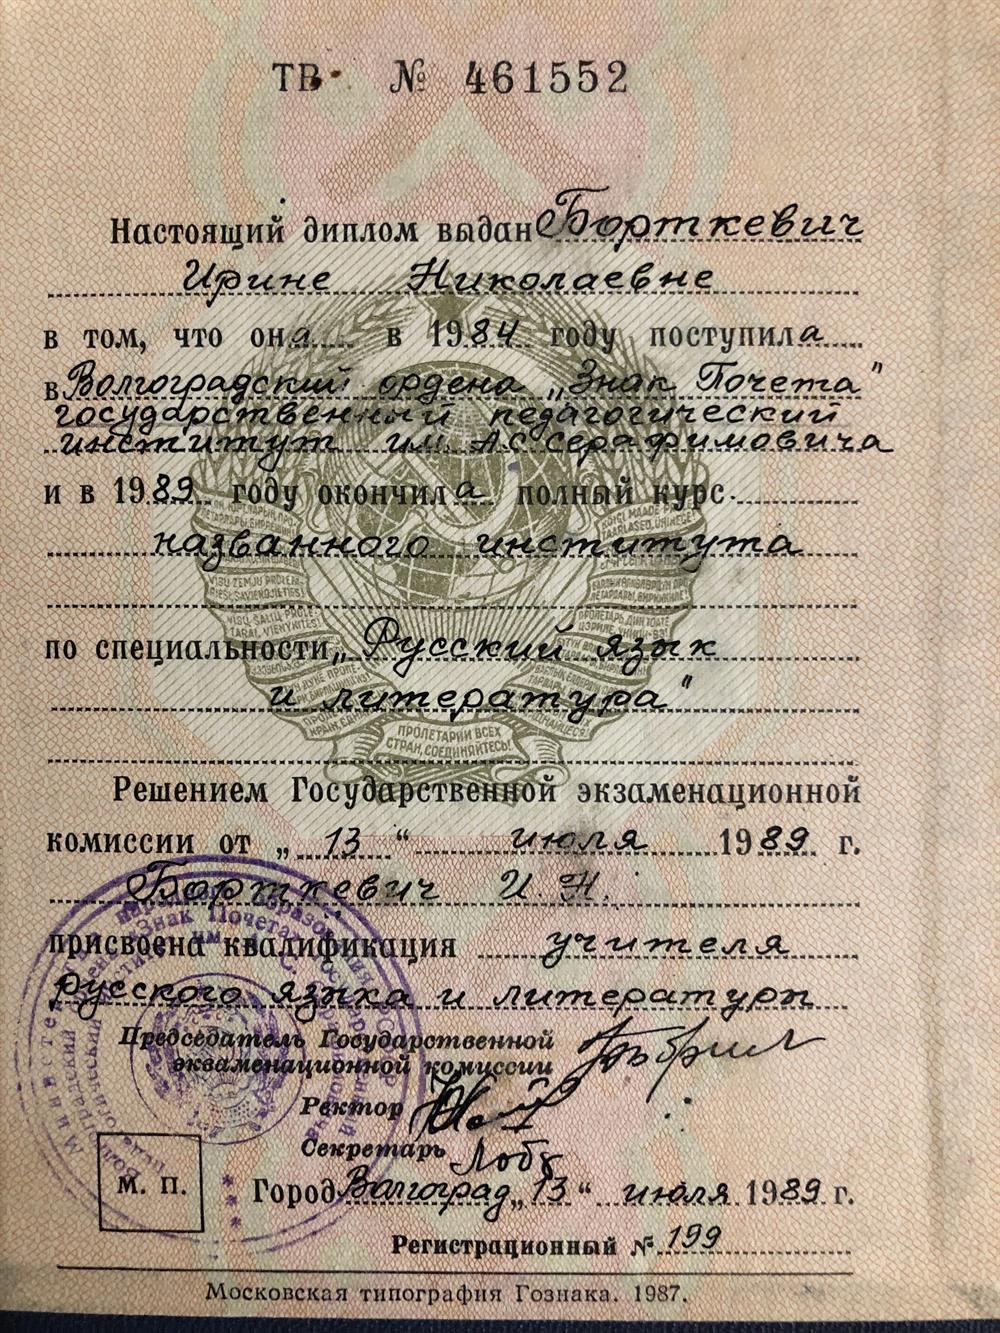 ТВ № 461552
Настоящий диплом выдан Борткевич
Ирине Николаевне
в том, что она в 1984 году поступила
в Волгоградский ордена „Знак Почета"
государственный педагогический
институт им. А.С. Серафимовича
и в 1989 году окончила полный курс
названного института
по специальности „Русский язык
и литература"
ПРОЛЕТАРИИ ВСЕХ
СТРАН, СОЕДИНЯЙТЕСЬ!
Решением Государственной экзаменационной
комиссии от „13" июля 1989 г.
Борткевич И. Н.
присвоена квалификация учителя
русского языка и литературы
Председатель Государственной
экзаменационной комиссии
Ректор
Секретарь
М. П.
Город Волгоград „13" июля 1989 г.
Регистрационный № 199
Московская типография Гознака. 1987.